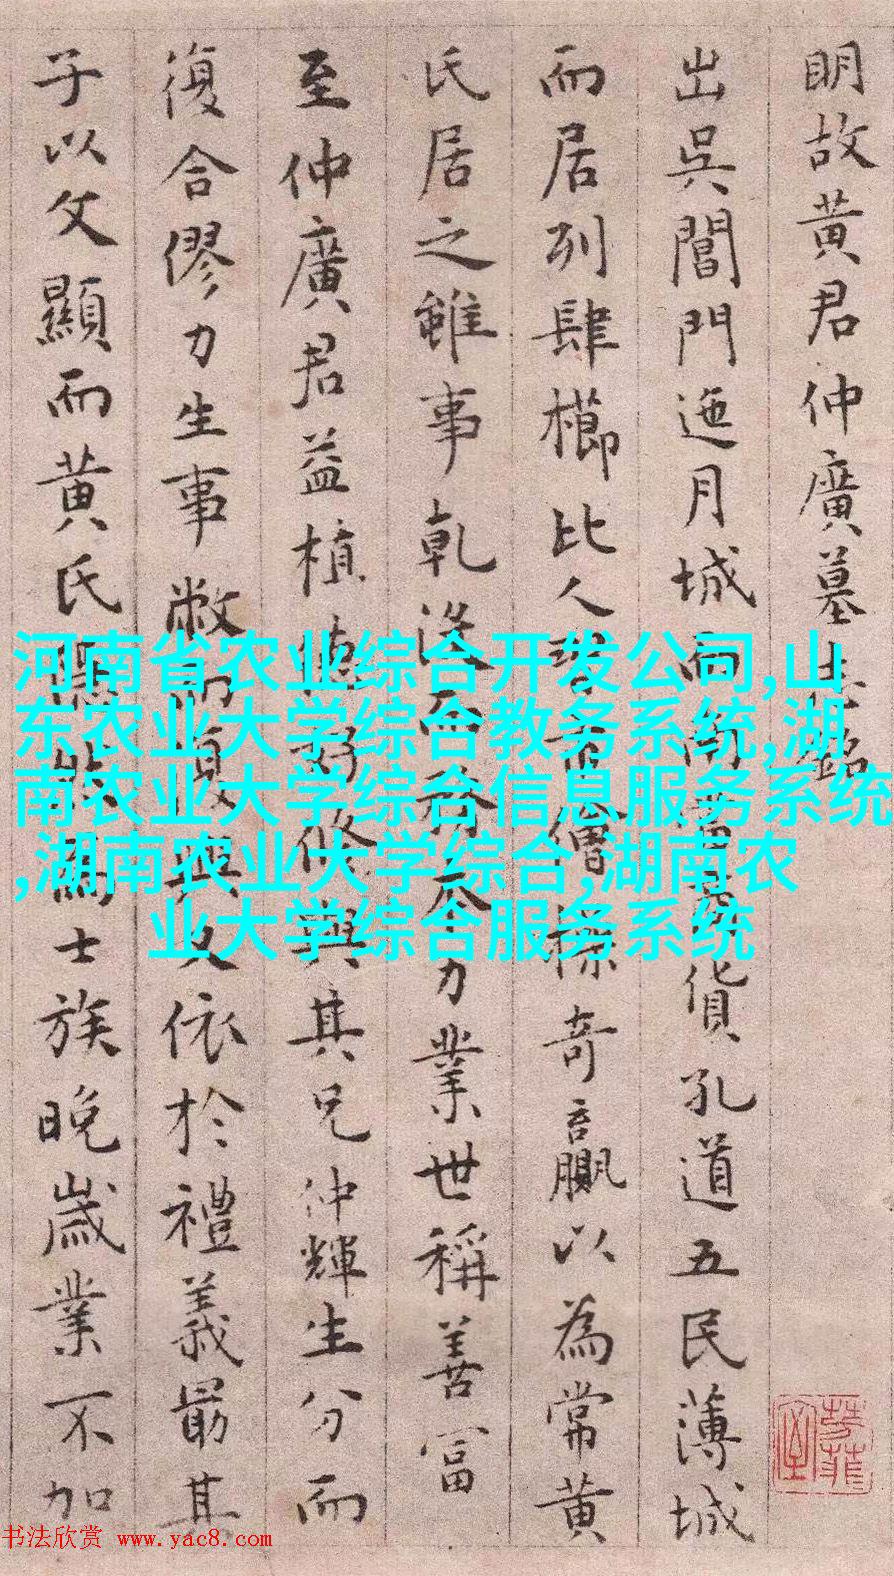 明故黄君仲廣墓志銘
出吳閶門迤月城而南
貨孔道五民薄城
而居列肆櫛比人
操奇贏以為常黄
氏居之雖事乾没而務本力業世稱善富
至仲廣君益植德好修與其兄仲輝生分而
復合僇力生事敝而復興又依於禮義最其
子以文顯而黄氏
士族晚歲業不加
河南省农业综合开发公司,山
东农业大学综合教务系统,湖
南农业大学综合信息服务系统
,湖南农业大学综合,湖南农
业大学综合服务系统
书法欣赏 www.yac8.com